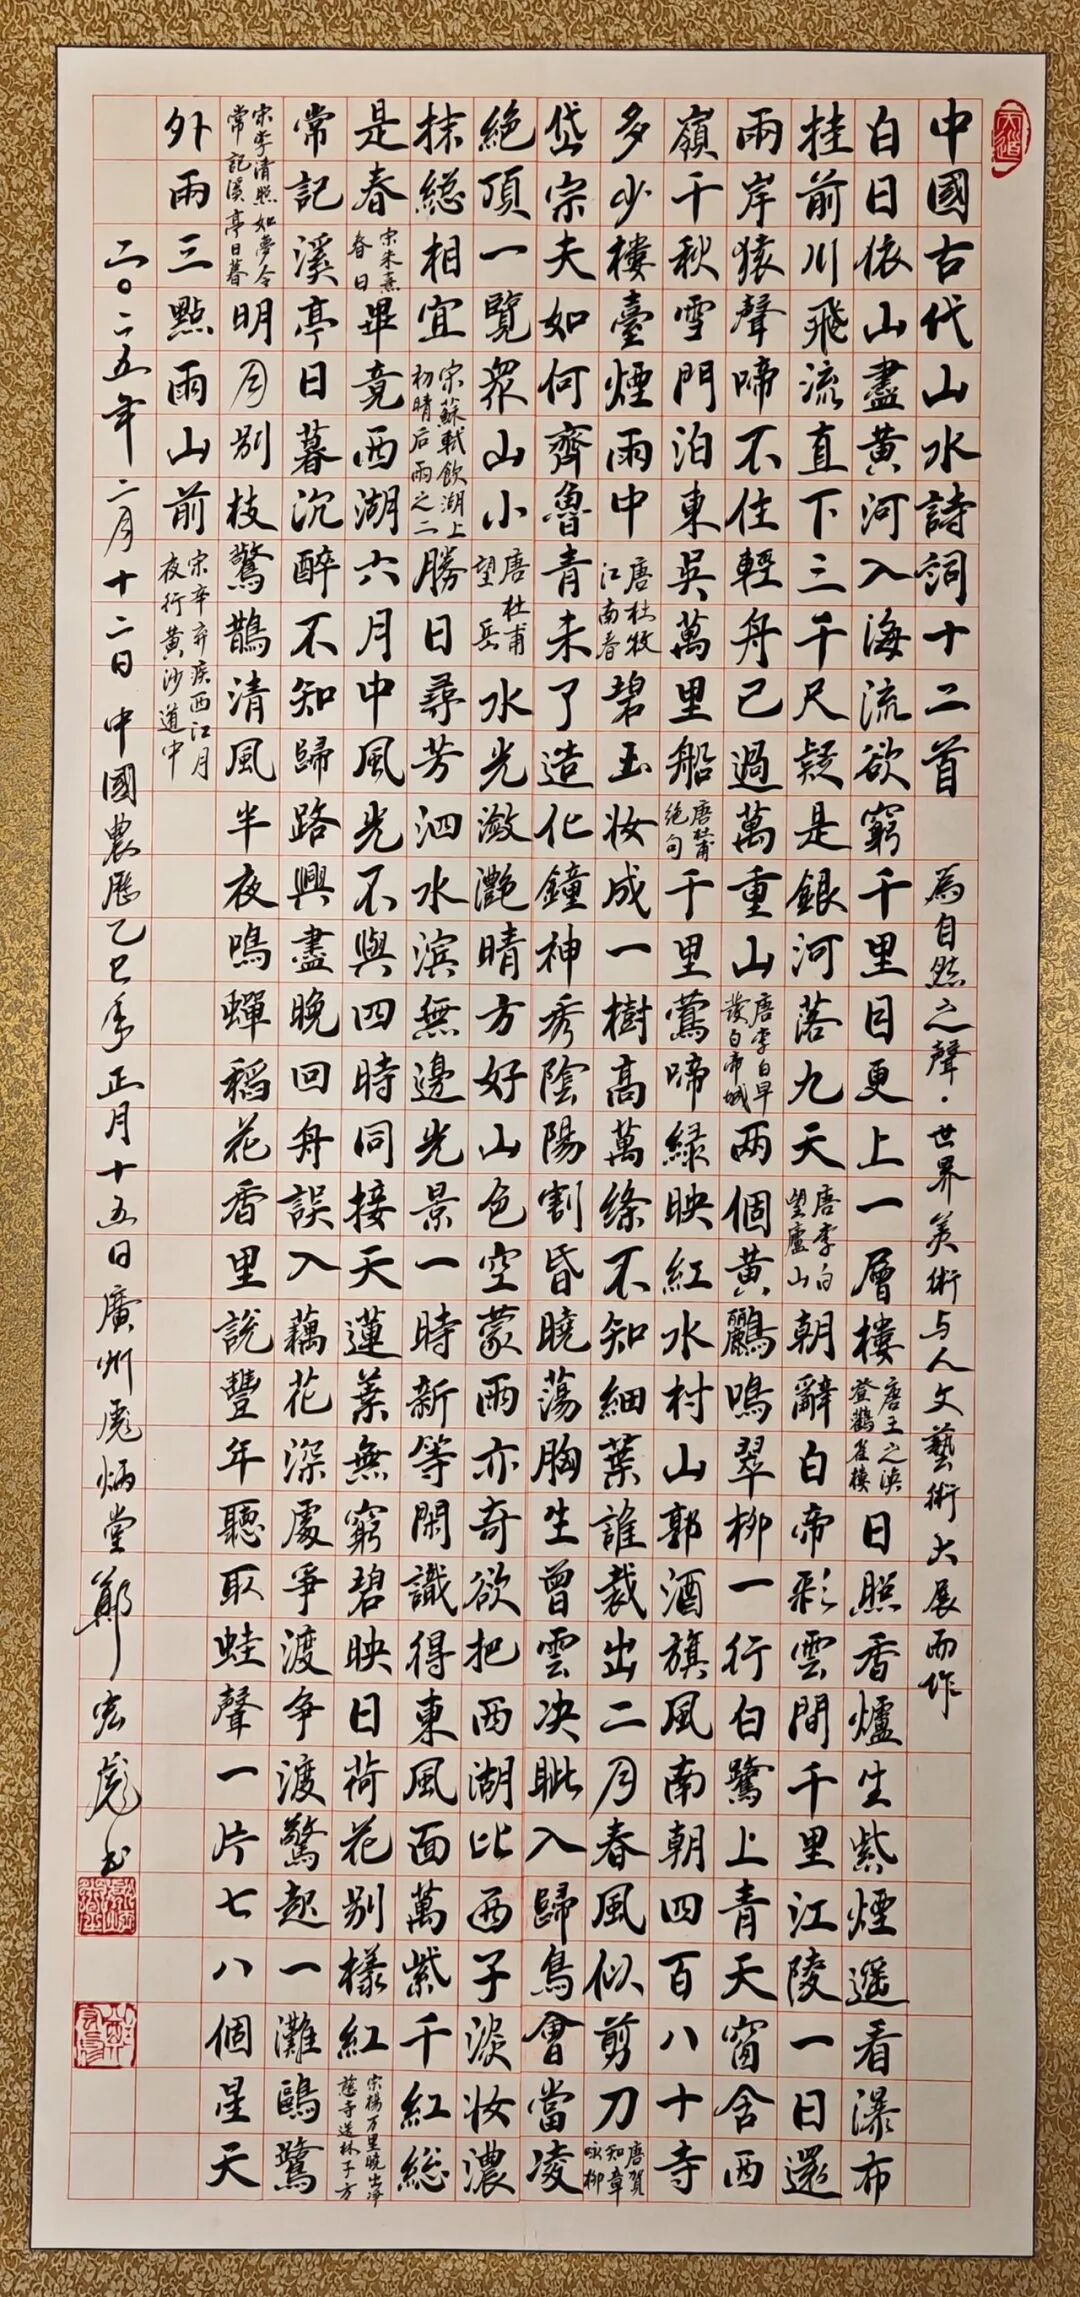 中國古代山水詩詞十二首 為自然之聲·世界美術与人文藝術大展而作
白日依山盡黃河入海流欲窮千里目更上一層樓 唐王之渙登鸛雀樓 日照香爐生紫煙遙看瀑布
挂前川飛流直下三千尺疑是銀河落九天 唐李白望廬山 朝辭白帝彩雲間千里江陵一日還
兩岸猿聲啼不住輕舟已過萬重山 唐李白早發白帝城 两個黃鸝鳴翠柳一行白鷺上青天窗含西
嶺千秋雪門泊東吳萬里船 唐杜甫絕句 千里鶯啼綠映紅水村山郭酒旗風南朝四百八十寺
多少樓臺煙雨中 唐杜牧江南春 碧玉妝成一樹高萬絛不知細葉誰裁出二月春風似剪刀 唐賀知章咏柳
岱宗夫如何齊魯青未了造化鐘神秀陰陽割昏曉蕩胸生曾雲决眦入歸鳥會當凌
絕頂一覽眾山小 唐杜甫望岳 水光瀲灩晴方好山色空蒙雨亦奇欲把西湖比西子淡妝濃
抹総相宜 宋蘇軾飲湖上初晴后雨之二 勝日尋芳泗水滨無邊光景一時新等閑識得東風面萬紫千紅総
是春 宋朱熹春日 畢竟西湖六月中風光不與四時同接天蓮葉無窮碧映日荷花別樣紅 宋楊万里曉出淨慈寺送林子方
常記溪亭日暮沉醉不知歸路興盡晚回舟誤入藕花深處爭渡爭渡驚起一灘鷗鷺
宋李清照如夢令常記溪亭日暮 明月別枝驚鵲清風半夜鳴蟬稻花香里說豐年聽取蛙聲一片七八個星天
外兩三點雨山前 宋辛弃疾西江月夜行黄沙道中
二〇二五年二月十二日中國農历乙巳年正月十五日廣州彪炳堂鄭宏彪书